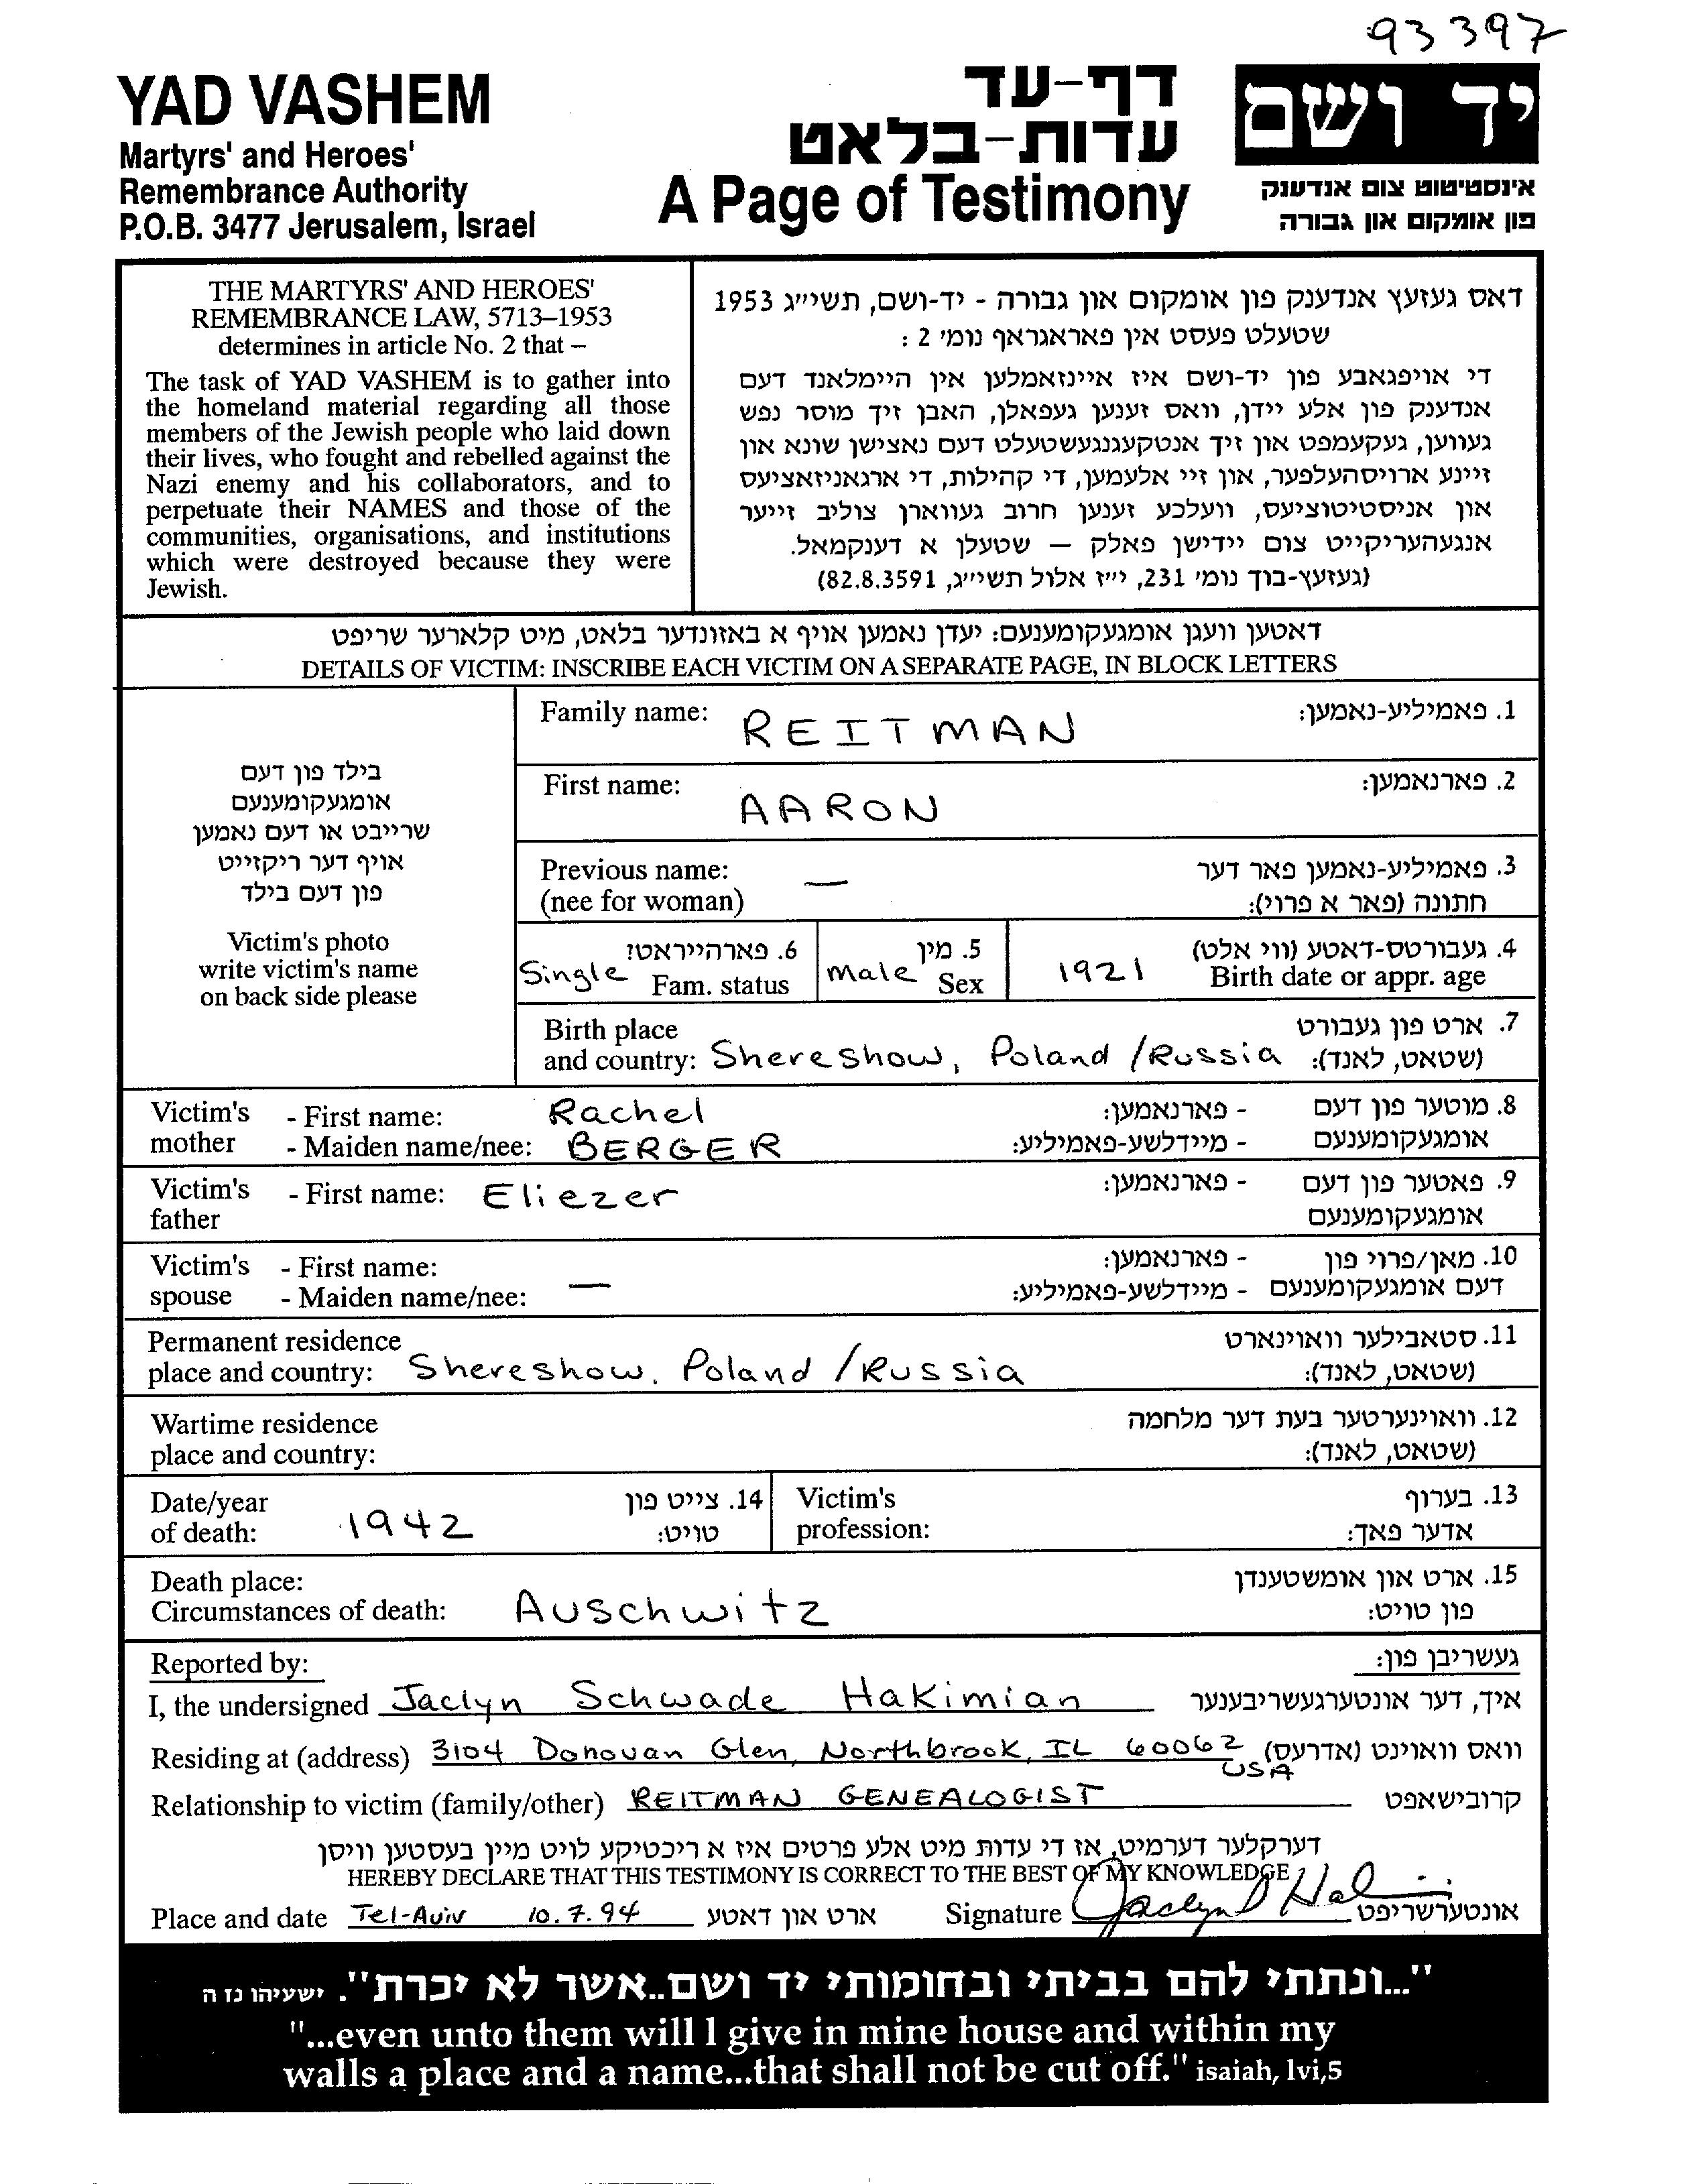 93397
YAD VASHEM
Martyrs' and Heroes'
Remembrance Authority
P.O.B. 3477 Jerusalem, Israel
דף-עד
עדות-בלאט
A Page of Testimony
יד ושם
אינסטיטוט צום אנדענק
פון אומקום און גבורה
THE MARTYRS' AND HEROES'
REMEMBRANCE LAW, 5713–1953
determines in article No. 2 that –
The task of YAD VASHEM is to gather into
the homeland material regarding all those
members of the Jewish people who laid down
their lives, who fought and rebelled against the
Nazi enemy and his collaborators, and to
perpetuate their NAMES and those of the
communities, organisations, and institutions
which were destroyed because they were
Jewish.
דאס געזעץ אנדענק פון אומקום און גבורה - יד-ושם, תשי״ג 1953
שטעלט פעסט אין פאראגראף נומ' 2 :
די אויפגאבע פון יד-ושם איז איינזאמלען אין היימלאנד דעם
אנדענק פון אלע יידן, וואס זענען געפאלן, האבן זיך מוסר נפש
געווען, געקעמפט און זיך אנטקעגנגעשטעלט דעם נאצישן שונא און
זיינע ארויסהעלפער, און זיי אלעמען, די קהילות, די ארגאניזאציעס
און אניסטיטוציעס, וועלכע זענען חרוב געווארן צוליב זייער
אנגעהעריקייט צום יידישן פאלק — שטעלן א דענקמאל.
(געזעץ-בוך נומ' 231, י״ז אלול תשי״ג, 82.8.3591)
דאטען וועגן אומגעקומענעם: יעדן נאמען אויף א באזונדער בלאט, מיט קלארער שריפט
DETAILS OF VICTIM: INSCRIBE EACH VICTIM ON A SEPARATE PAGE, IN BLOCK LETTERS
בילד פון דעם
אומגעקומענעם
שרייבט או דעם נאמען
אויף דער ריקזייט
פון דעם בילד
Victim's photo
write victim's name
on back side please
Family name: REITMAN 1. פאמיליע-נאמען:
First name: AARON 2. פארנאמען:
Previous name: — 3. פאמיליע-נאמען פאר דער
(nee for woman) חתונה (פאר א פרוי):
6. פארהייראטט? 5. מין 4. געבורטס-דאטע (ווי אלט)
Single Fam. status male Sex 1921 Birth date or appr. age
Birth place 7. ארט פון געבורט
and country: Shereshow, Poland /Russia (שטאט, לאנד):
Victim's - First name: Rachel - פארנאמען: 8. מוטער פון דעם
mother - Maiden name/nee: BERGER - מיידלשע-פאמיליע: אומגעקומענעם
Victim's - First name: Eliezer - פארנאמען: 9. פאטער פון דעם
father אומגעקומענעם
Victim's - First name: - פארנאמען: 10. מאן/פרוי פון
spouse - Maiden name/nee: — - מיידלשע-פאמיליע: דעם אומגעקומענעם
Permanent residence 11. סטאבילער וואוינארט
place and country: Shereshow, Poland /Russia (שטאט, לאנד):
Wartime residence 12. וואוינערטער בעת דער מלחמה
place and country: (שטאט, לאנד):
Date/year 14. צייט פון Victim's 13. בערוף
of death: 1942 טויט: profession: אדער פאך:
Death place: 15. ארט און אומשטענדן
Circumstances of death: Auschwitz פון טויט:
Reported by: געשריבן פון:
I, the undersigned Jaclyn Schwade Hakimian איך, דער אונטערגעשריבענער
Residing at (address) 3104 Donovan Glen, Northbrook, IL 60062 USA וואס וואוינט (אדרעס)
Relationship to victim (family/other) REITMAN GENEALOGIST קרובישאפט
דערקלער דערמיט, אז די עדות מיט אלע פרטים איז א ריכטיקע לויט מיין בעסטען וויסן
HEREBY DECLARE THAT THIS TESTIMONY IS CORRECT TO THE BEST OF MY KNOWLEDGE
Place and date Tel-Aviv 10.7.94 ארט און דאטע Signature אונטערשריפט
"...ונתתי להם בביתי ובחומותי יד ושם..אשר לא יכרת". ישעיהו נז ה
"...even unto them will I give in mine house and within my
walls a place and a name...that shall not be cut off." isaiah, lvi,5